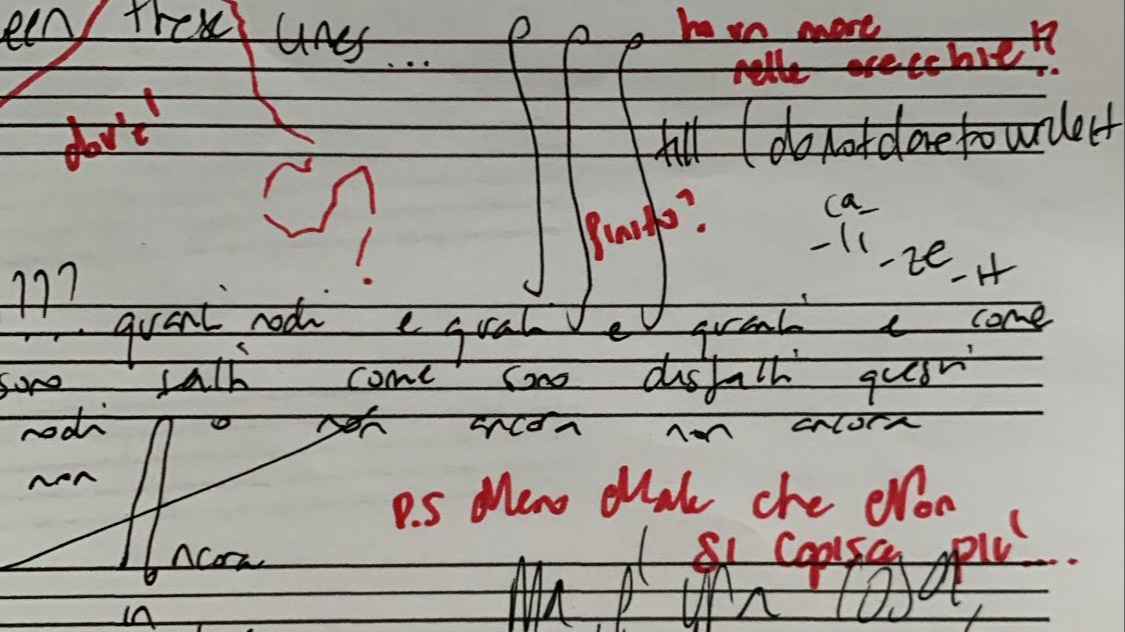 een these lines ...
ha un mare
nelle orecchie!?
dov'è!
till I do not dare to
finito?
ca-
-li
-ze
-H
???
.... quanti nodi e quali e quanti e come
sono fatti come sono disfatti questi
nodi o non ancora non ancora
non
ncora
in
P.S Meno Male che Non
si capisce più....